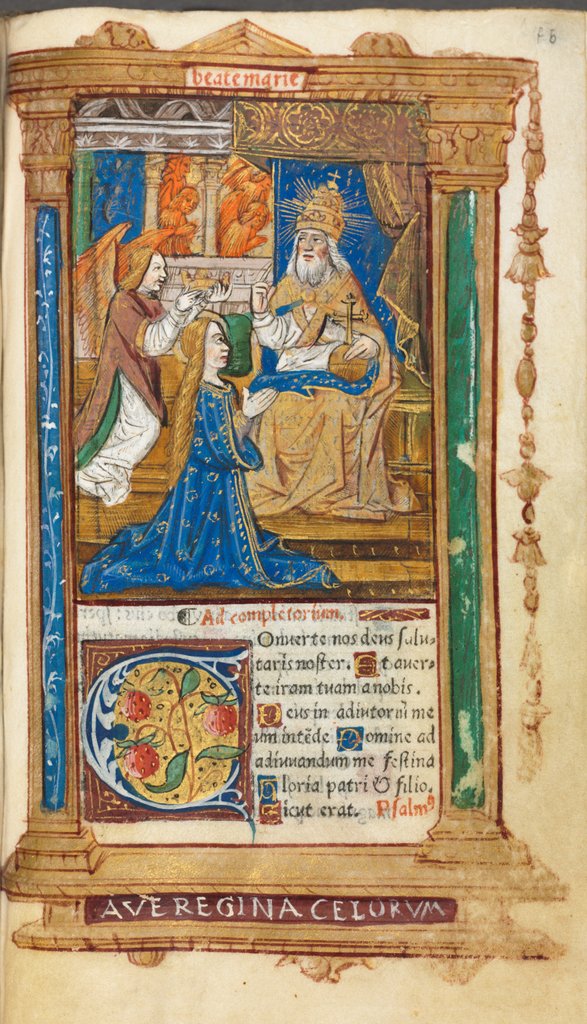 beate marie
Ad completorium.
Onuerte nos deus salu-
taris noster. Et auer-
te iram tuam a nobis.
Deus in adiutoriū me
um intēde Domine ad
adiuuandum me festina
Gloria patri & filio.
Sicut erat. Psalmꝰ
AVE REGINA CELORVM